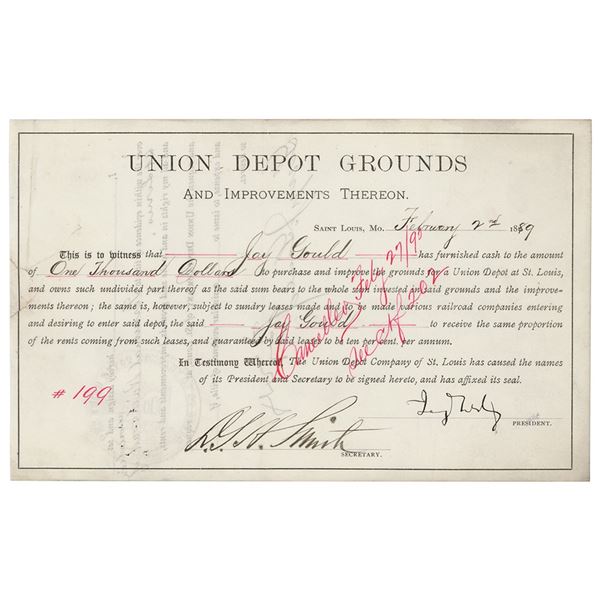 UNION DEPOT GROUNDS
AND IMPROVEMENTS THEREON.
SAINT LOUIS, MO. February 2nd 1889
This is to witness that Jay Gould has furnished cash to the amount
of One Thousand Dollars to purchase and improve the grounds for a Union Depot at St. Louis,
and owns such undivided part thereof as the said sum bears to the whole sum invested in said grounds and the improve-
ments thereon; the same is, however, subject to sundry leases made and to be made various railroad companies entering
and desiring to enter said depot, the said Jay Gould to receive the same proportion
of the rents coming from such leases, and guarantied by said leases to be ten per cent. per annum.
In Testimony Whereof, The Union Depot Company of St. Louis has caused the names
of its President and Secretary to be signed hereto, and has affixed its seal.
Cancelled Feby 27/95
See Ctf 202
# 199
PRESIDENT.
Smith
SECRETARY.